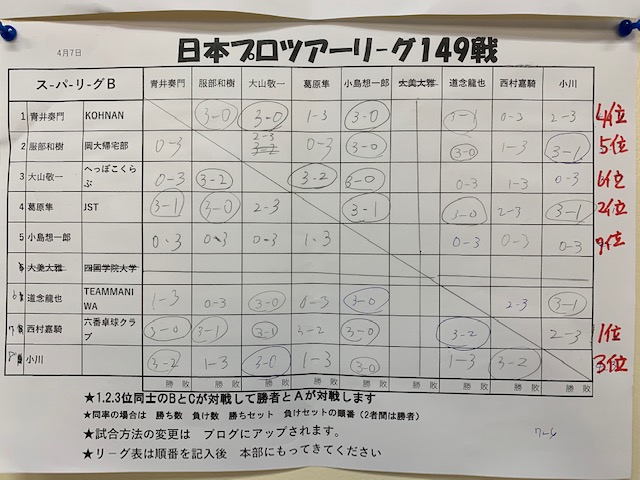 4月7日
日本プロツアーリーグ149戦
スーパーリーグB 青井奏門 服部和樹 大山敬一 葛原隼 小島想一郎 大美大雅 道念龍也 西村嘉騎 小川
1 青井奏門 KOHNAN 3-0 3-0 1-3 3-0 0-3 2-3 4位
2 服部和樹 岡大帰宅部 0-3 2-3 0-3 3-0 3-0 1-3 3-1 5位
3 大山敬一 へっぽこくらぶ 0-3 3-2 3-2 3-0 0-3 1-3 0-3 6位
4 葛原隼 JST 3-1 3-0 2-3 3-1 3-0 2-3 3-1 2位
5 小島想一郎 0-3 0-3 0-3 1-3 0-3 0-3 0-3
大美大雅 四国学院大学
道念龍也 TEAMMANIWA 1-3 0-3 3-0 0-3 3-0 2-3 3-1
西村嘉騎 六番卓球クラブ 3-0 3-1 3-1 3-2 3-0 3-2 2-3 1位
小川 3-2 1-3 3-0 1-3 3-0 1-3 3-2 3位
勝 敗 勝 敗 勝 敗 勝 敗 勝 敗 勝 敗 勝 敗 勝 敗 勝 敗
★1.2.3位同士のBとCが対戦して勝者とAが対戦します
★同率の場合は 勝ち数 負け数 勝ちセット 負けセットの順番 (2者間は勝者)
★試合方法の変更は ブログにアップされます。
★リーグ表は順番を記入後 本部にもってきてください